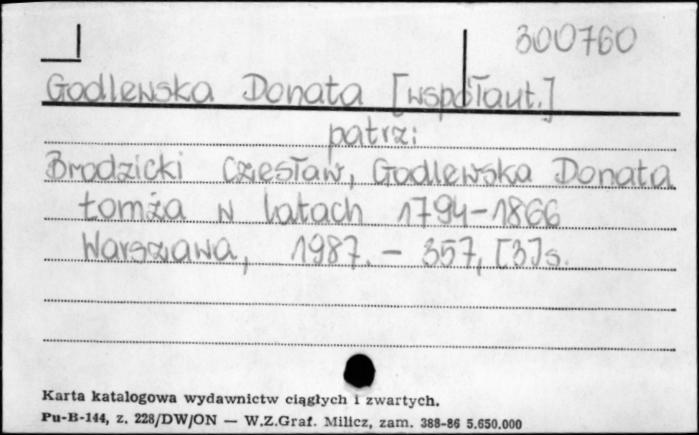 300760
Godlewska Donata [współaut.]
patrz:
Brodzicki Czesław, Godlewska Donata
Łomża w latach 1794-1866
Warszawa, 1987. - 357, [3] s.
Karta katalogowa wydawnictw ciągłych i zwartych.
Pu-B-144, z. 228/DW/ON — W.Z.Graf. Milicz, zam. 388-86 5.650.000